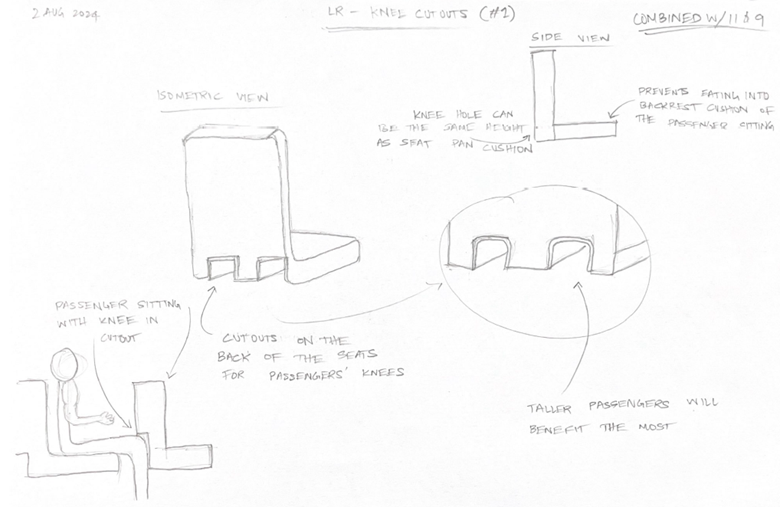 2 AUG 2024.
LR - KNEE CUTOUTS (#1)
COMBINED W/ 11 & 9
SIDE VIEW
ISOMETRIC VIEW
KNEE HOLE CAN
BE THE SAME HEIGHT
AS SEAT PAN CUSHION
PREVENTS EATING INTO
BACKREST CUSHION OF
THE PASSENGER SITTING
PASSENGER SITTING
WITH KNEE IN
CUTOUT
CUTOUTS ON THE
BACK OF THE SEATS
FOR PASSENGERS' KNEES
TALLER PASSENGERS WILL
BENEFIT THE MOST